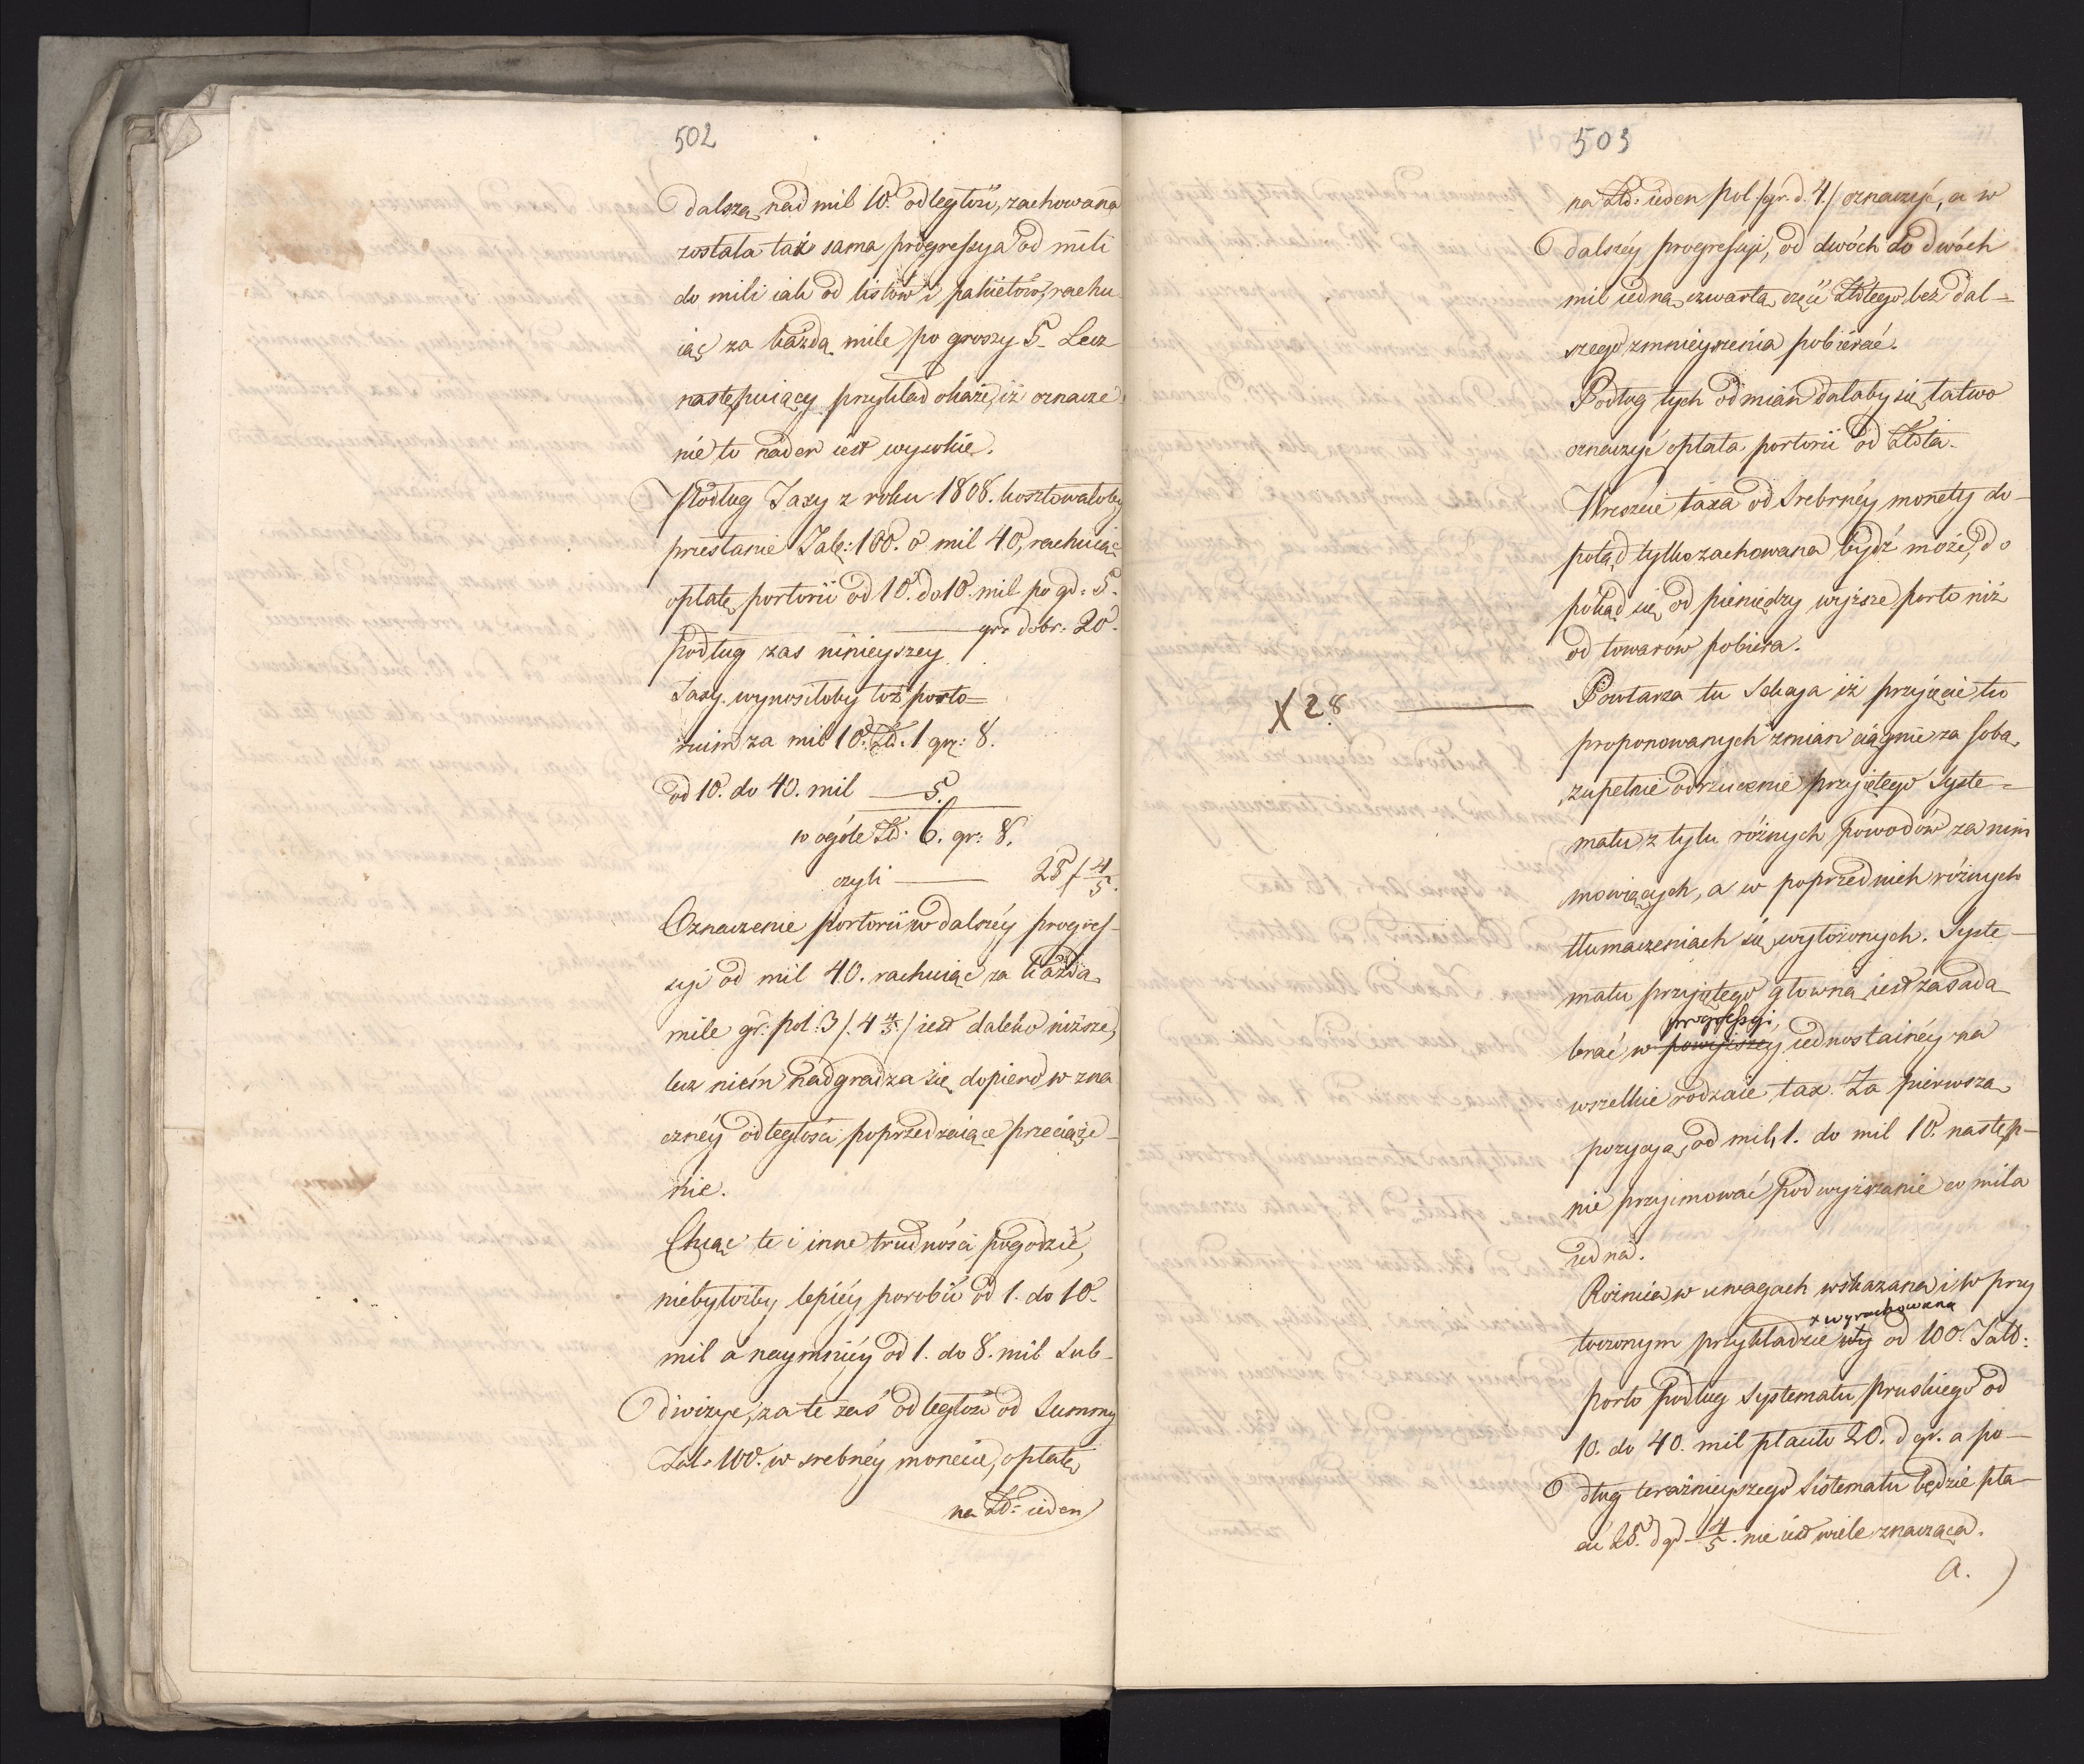 502
dalszą nad mil 10. odległość, zachowana
została taż sama progressya od mili
do mili iak od listów i pakietów, rachu
iąc za każdą milę po groszy 5. Lecz
następuiący przykład okaże, iż oznacze
nie to nader iest wysokie.
Podług Taxy z roku 1808. kosztowałoby
przesłanie Tal: 100. o mil 40, rachuiąc
opłatę portorii od 10. do 10. mil po gd: 5.
grr dobr: 20.
podług zas ninieyszey
Taxy wynosiłoby toż porto=
rium za mil 10. Zł: 1 gr: 8.
od 10. do 40. mil — 5.
w ogóle Zł: 6. gr: 8.
czyli — 25 f 4/5.
Oznaczenie portorii w dalszéy progres-
syi od mil 40. rachuiąc za każdą
milę gr: pol: 3 /. 4 4/5 / iest daleko niższe,
lecz niém nadgradza się dopiero w zna
cznéy odległości poprzedzaiące przeciąże-
nie.
Chcąc te i inne trudności pogodzić,
niebyłożby lepiéy porobić od 1. do 10.
mil a naymniéy od 1. do 8. mil sub-
diwizye, za te zaś odległość od Summy
Tal. 100. w srebnéy monecie, opłatę
na Zł: ieden
503
na Zło: ieden pol /gr. d. 4./ oznaczyć, a w
dalszéy progressyi, od dwóch do dwóch
mil iedną czwartą część Złłtego bez dal=
szego zmnieyszenia pobierać.
Podług tych odmian dałaby się łatwo
oznaczyć opłata portorii od Złota.
Wreszcie taxa od Srebrnéy monety do-
potąd tylko zachowana bydź może, do
pokąd się od pieniędzy wyższe porto niż
od towarów pobiera.
X 28 —
Powtarza tu Sekcya iż przyięcie tu
proponowanych zmian ciągnie za sobą
zupełnie odrzucenie przyiętego Syste=
matu z tylu różnych powodów za nim
mówiących, a w poprzednich różnych
tłumaczeniach się wyłożonych. Syste-
matu przyiętego główną iest zasadą
progressyi,
brać w powyższey iednostainéy na
wszelkie rodzaie tax. Za pierwszą
pozycyą od mili 1. do mil 10. następ-
nie przyimować podwyższanie co mila
iedna.
Różnica w uwagach wskazana i w przy
x wyrachowana
toczonym przykładzie iży od 100. Tall:
porto podług Systematu pruskiego od
10. do 40. mil płaciło 20. d gr. a po-
dług teraźnieyszego Sistematu będzie pła-
cić 25. d gr 4/5. nie iest wiele znacząca.
a.